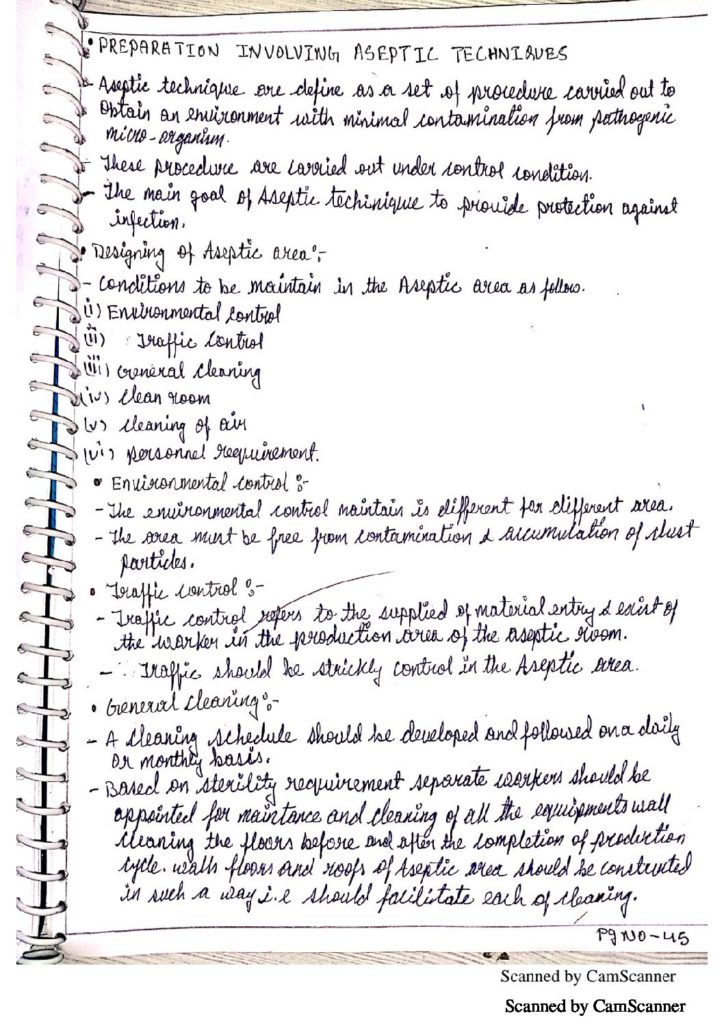 • PREPARATION INVOLVING ASEPTIC TECHNIQUES
- Aseptic technique are define as a set of procedure carried out to
obtain an environment with minimal contamination from pathogenic
micro-organism.
- These procedure are carried out under control condition.
- The main goal of Aseptic techinique to provide protection against
infection.
• Designing of Aseptic area:-
- Conditions to be maintain in the Aseptic area as follow.
i) Environmental control
ii) Traffic control
iii) General cleaning
(iv) clean room
(v) cleaning of air
(vi) personnel requirement.
• Environmental control :-
- The environmental control maintain is different for different area.
- The area must be free from contamination & accumulation of dust
particles.
• Traffic control :-
- Traffic control refers to the supplied of material entry & exist of
the worker in the production area of the aseptic room.
- Traffic should be strickly control in the Aseptic area.
• General cleaning:-
- A cleaning schedule should be developed and followed on a daily
or monthly basis.
- Based on sterility requirement separate workers should be
appointed for maintance and cleaning of all the equipments wall
cleaning the floors before and after the completion of production
cycle. walls floors and roofs of Aseptic area should be constructed
in such a way i.e should facilitate each of cleaning.
Pg NO-45
Scanned by CamScanner
Scanned by CamScanner